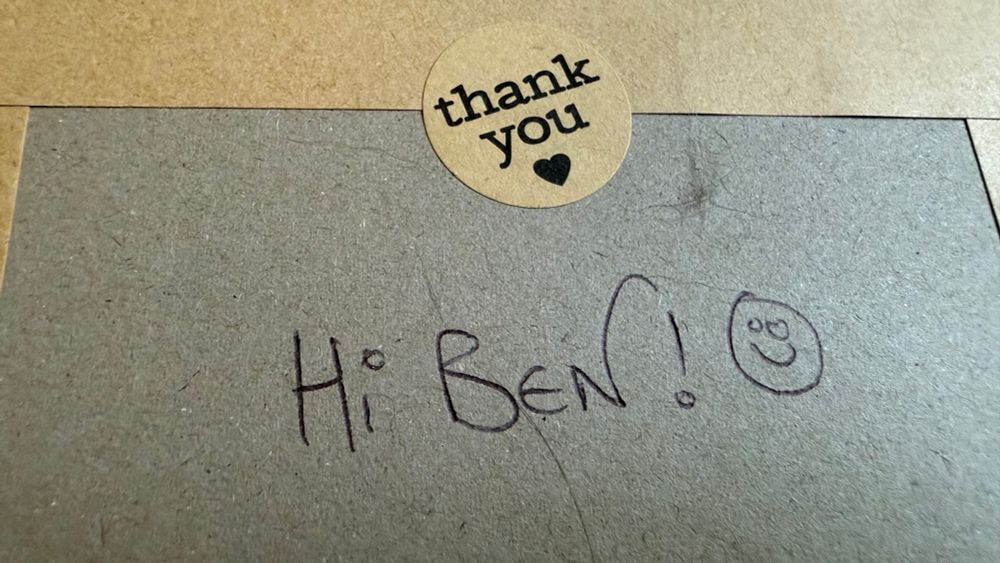 thank
you
Hi BEN!